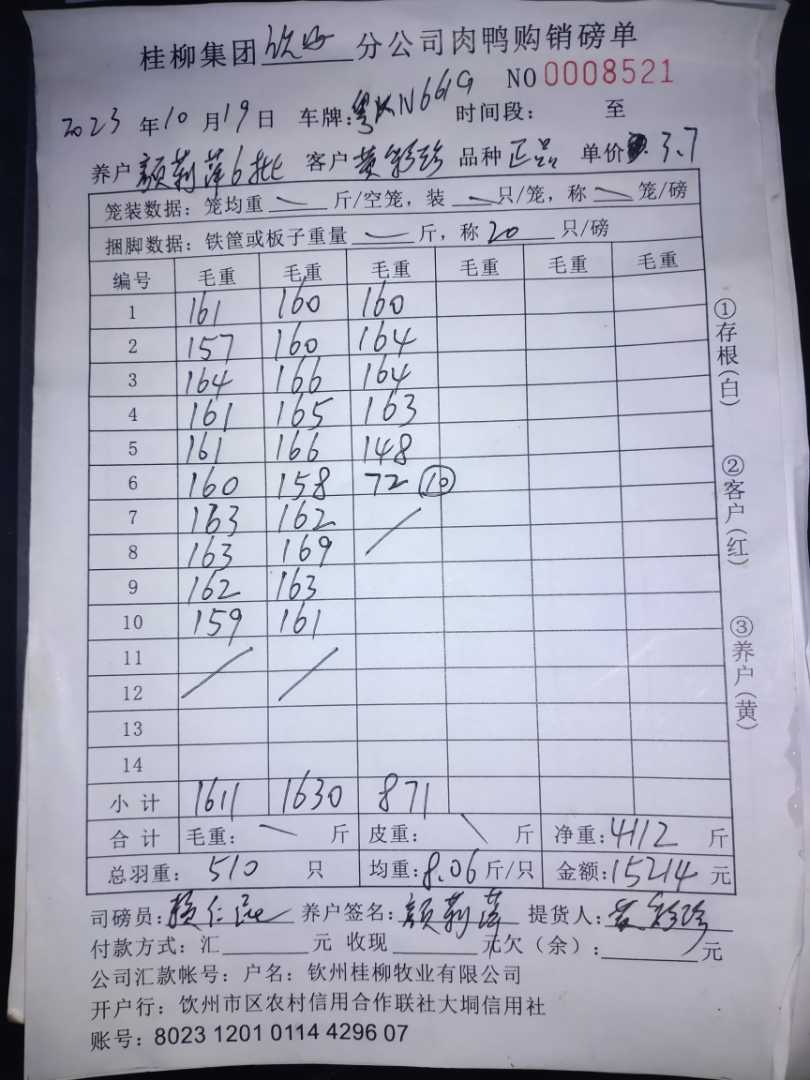 桂柳集团钦州分公司肉鸭购销磅单
NO 0008521
2023年10月19日 车牌: N661G 时间段: 至
养户 颜莉萍6批 客户 黄彩珍 品种 正品 单价 3.7
笼装数据: 笼均重 — 斤/空笼, 装 — 只/笼, 称 — 笼/磅
捆脚数据: 铁筐或板子重量 — 斤, 称 20 只/磅
编号 毛重 毛重 毛重 毛重 毛重 毛重
1 161 160 160
2 157 160 164
3 164 166 164
4 161 165 163
5 161 166 148
6 160 158 72 ⑩
7 163 162 /
8 163 169
9 162 163
10 159 161
11 / /
12
13
14
小计 1611 1630 871
合计 毛重: \ 斤 皮重: \ 斤 净重: 4112 斤
总羽重: 510 只 均重: 8.06 斤/只 金额: 15214 元
司磅员: 养户签名: 颜莉萍 提货人: 黄彩珍
付款方式: 汇 元 收现 元欠(余): 元
公司汇款帐号: 户名: 钦州桂柳牧业有限公司
开户行: 钦州市区农村信用合作联社大垌信用社
账号: 8023 1201 0114 4296 07
①存根(白)
②客户(红)
③养户(黄)